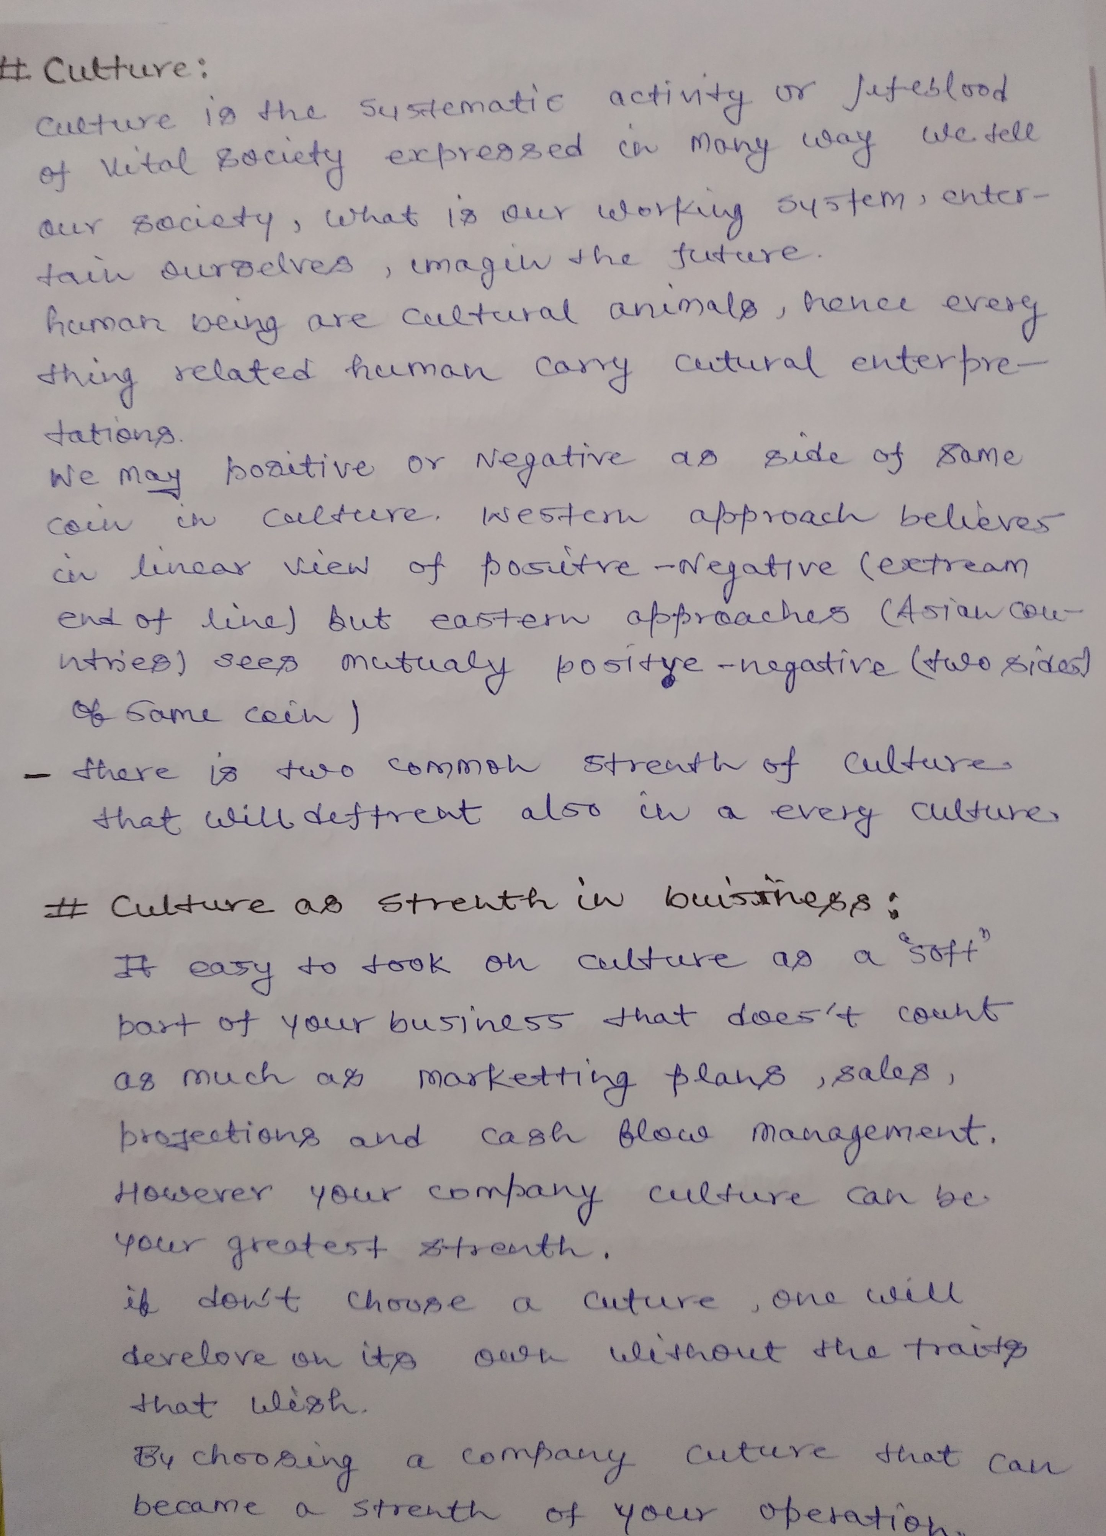 # Culture:
Culture is the systematic activity or lifeblood
of vital society expressed in many way we tell
our society, what is our working system, enter-
tain ourselves, imagin the future.
human being are cultural animals, hence every
thing related human carry cutural enterpre-
tations.
We may positive or Negative as side of same
coin in culture. Western approach believes
in linear view of positve - Negative (extream
end of line) but eastern approaches (Asian cou-
ntries) sees mutualy positve - negative (two sides)
of same coin)
- there is two common strenth of culture
that will deffrent also in a every culture
# Culture as strenth in buissiness:
It easy to took on culture as a "soft"
part of your business that does't count
as much as marketting plans, sales,
projections and cash flow management.
However your company culture can be
your greatest strenth.
if don't choose a cuture, one will
develove on its own without the traits
that wish.
By choosing a company cuture that can
became a strenth of your operation.